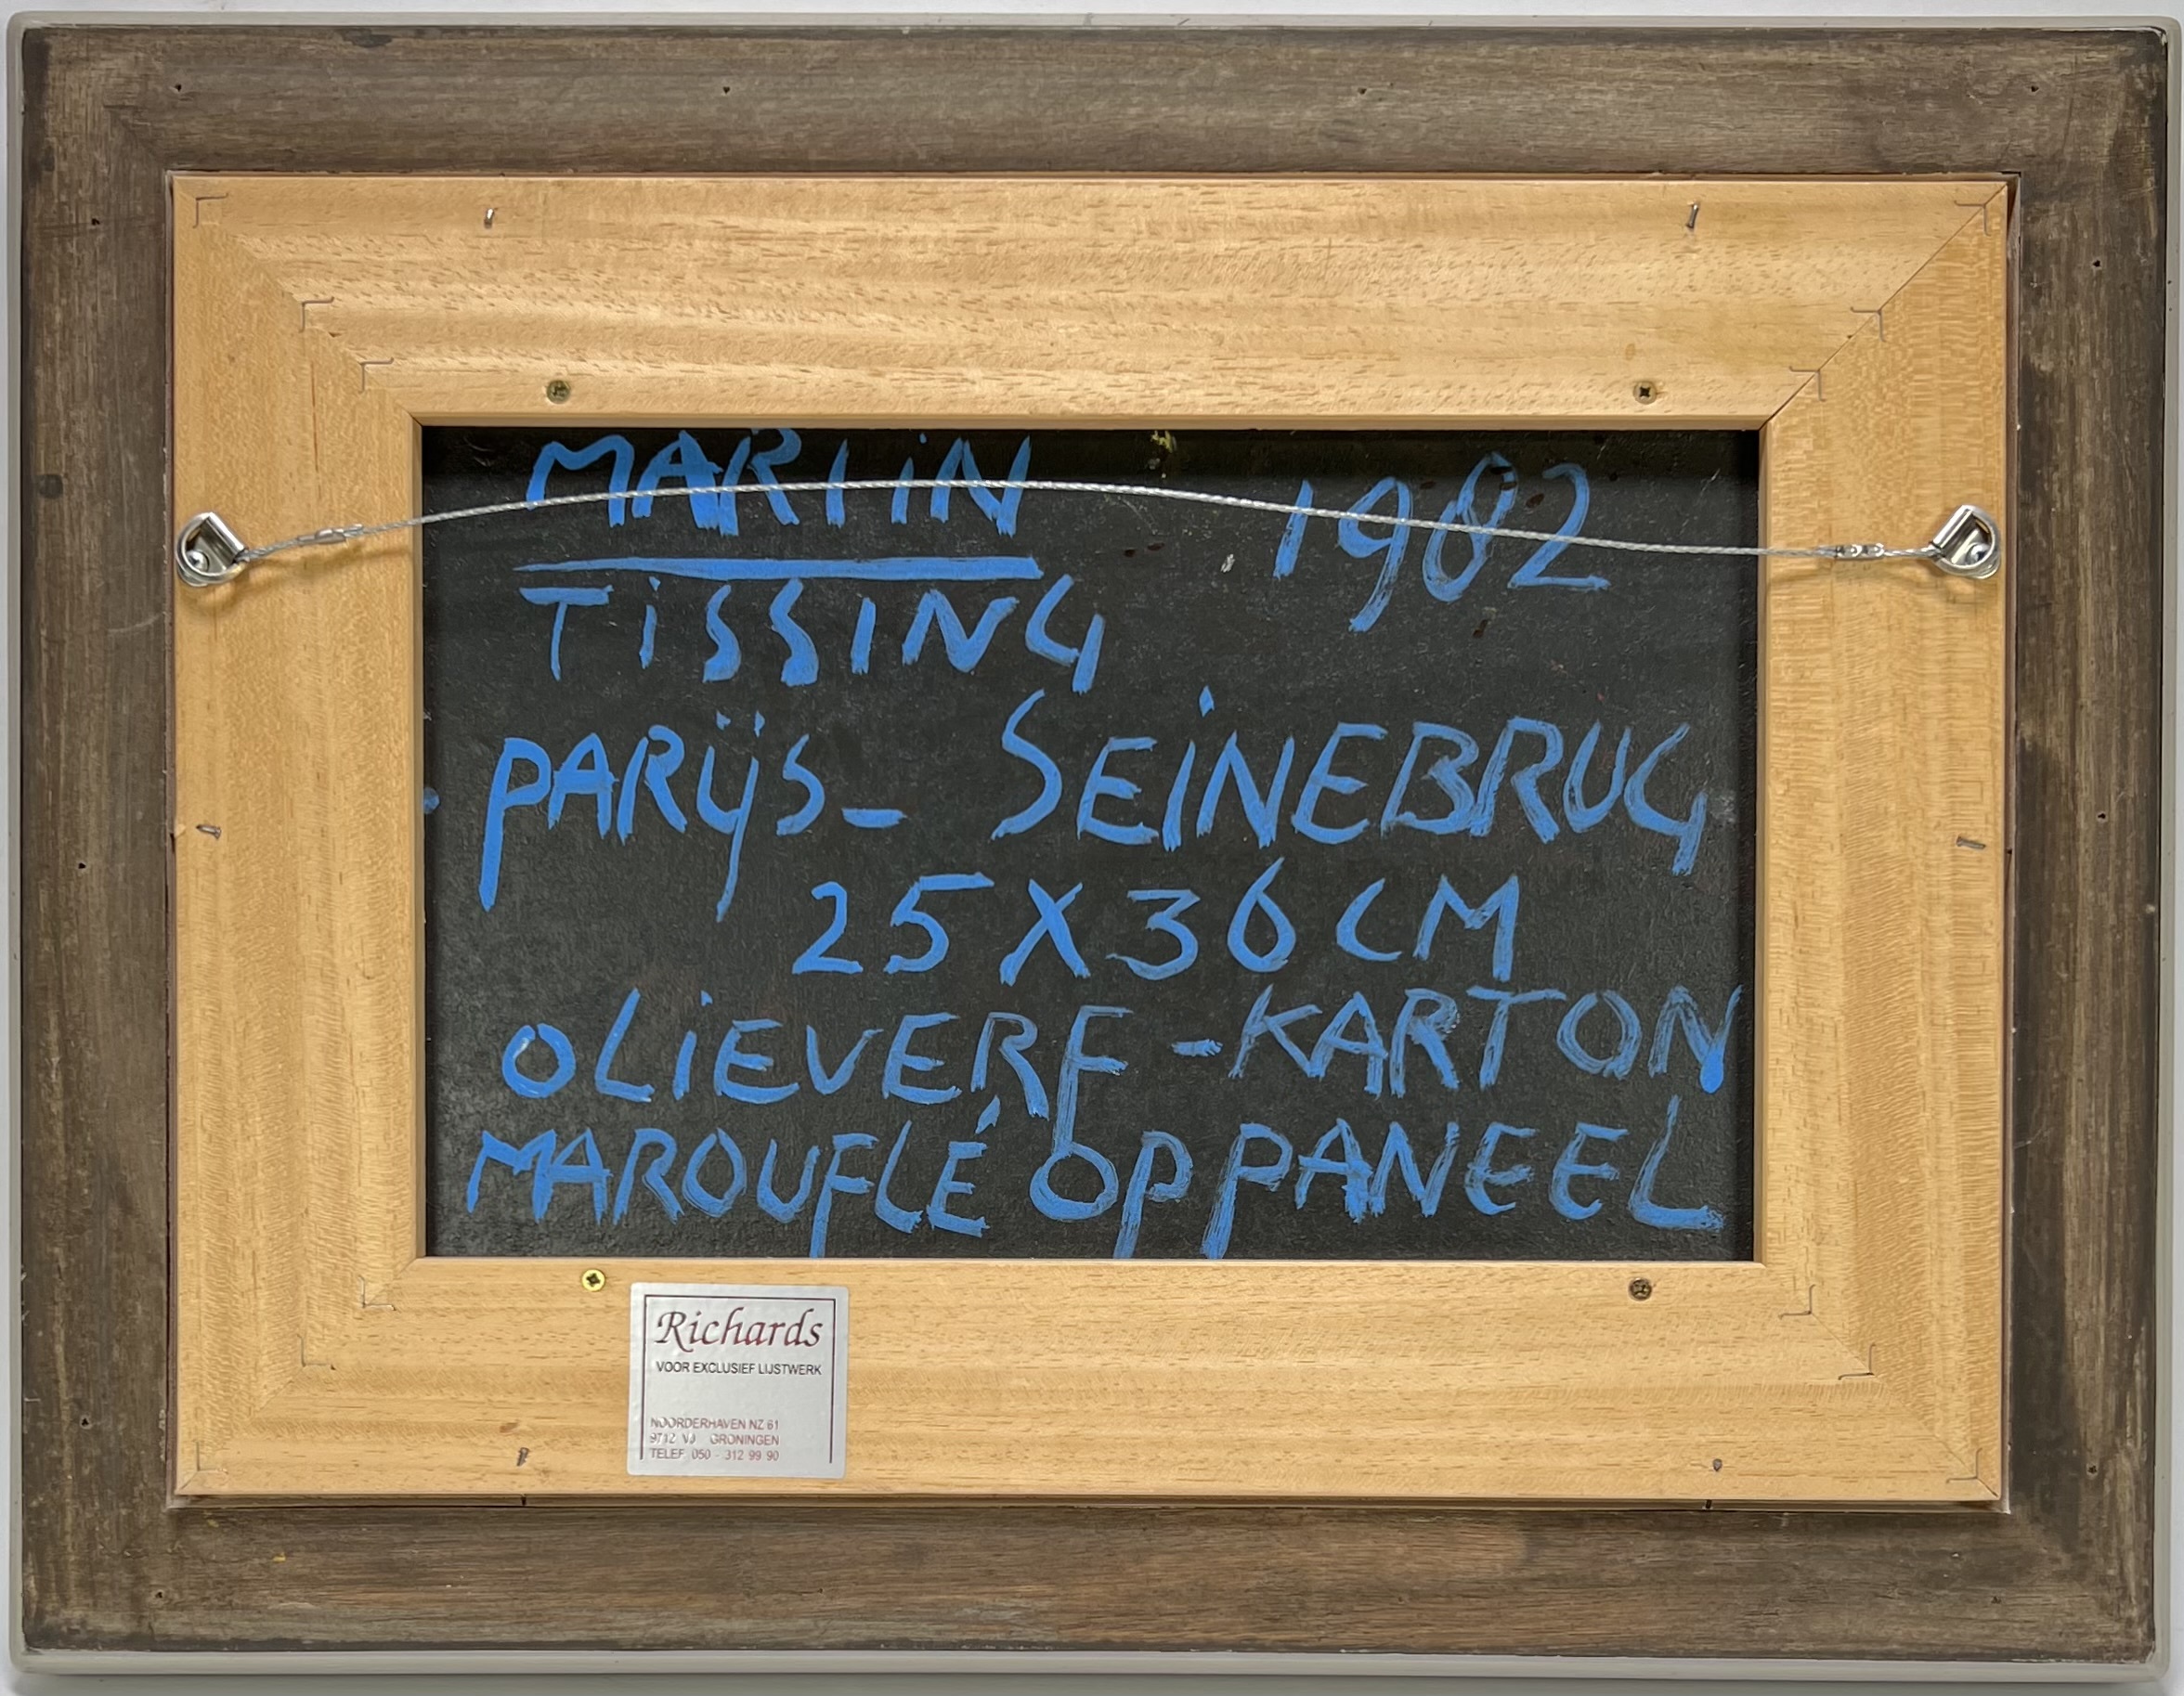 MARTIN 1982
TISSING
PARIJS- SEINEBRUG
25 X 36 CM
OLIEVERF-KARTON
MAROUFLÉ OP PANEEL
Richards
VOOR EXCLUSIEF LIJSTWERK
NOORDERHAVEN NZ 61
9712 VJ GRONINGEN
TELEF 050 - 312 99 90